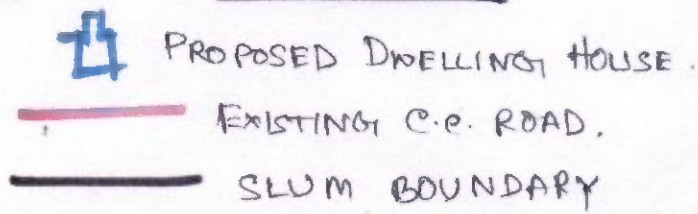 PROPOSED DWELLING HOUSE.
EXISTING C.C. ROAD.
SLUM BOUNDARY